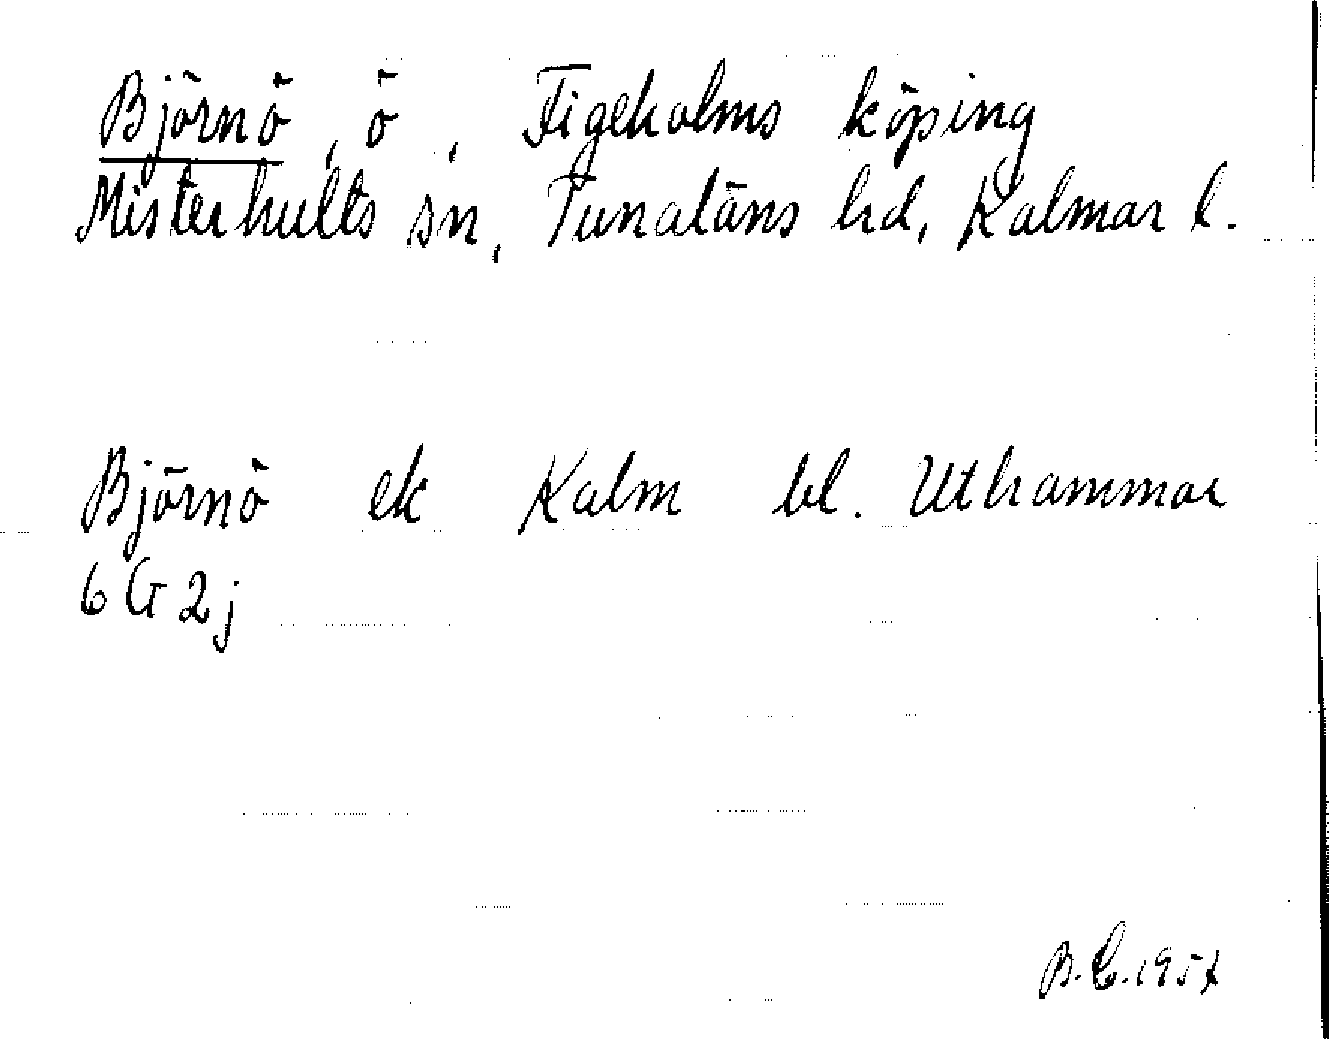 Björnö, ö, Figeholms köping
Misterhults sn, Tunaläns hd, Kalmar l.
Björnö ek Kalm bl. Uthammar
6 G 2j
B.C. 1957